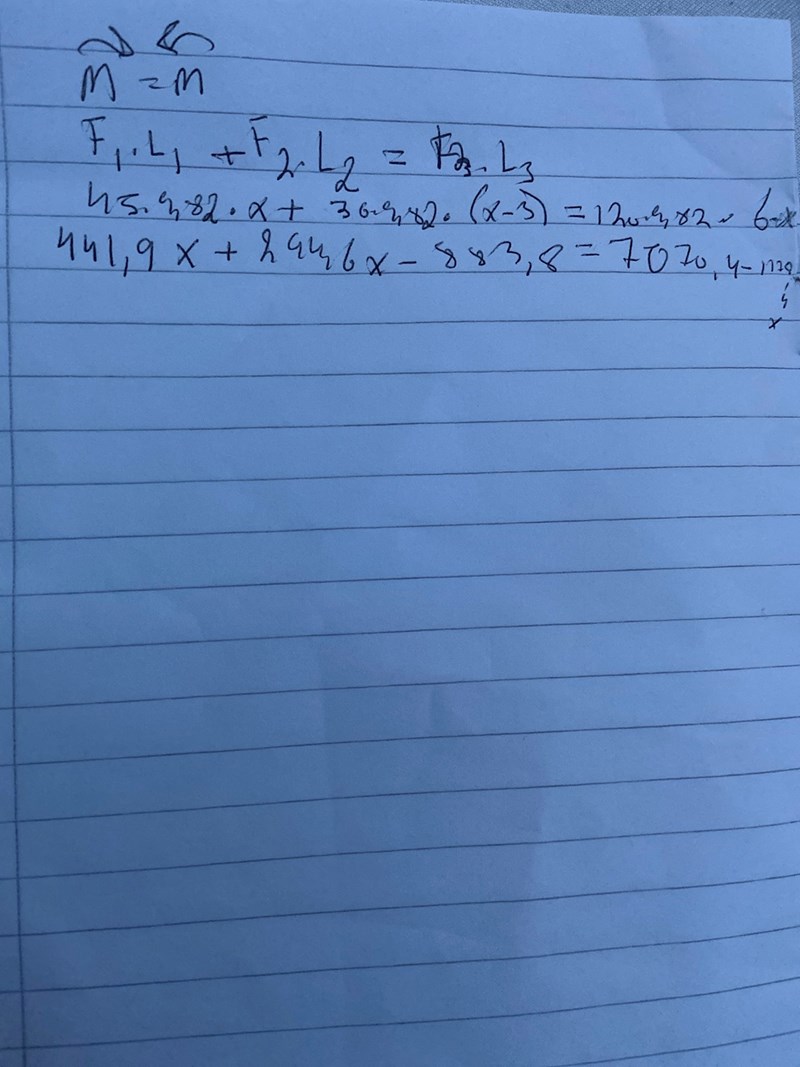 M = M
F₁.L₁ + F₂.L₂ = F₃.L₃
45.9,82.x + 30.9,82.(x-3) = 120.9,82. 6-x
441,9x + 294,6x - 883,8 = 7070,4-
x